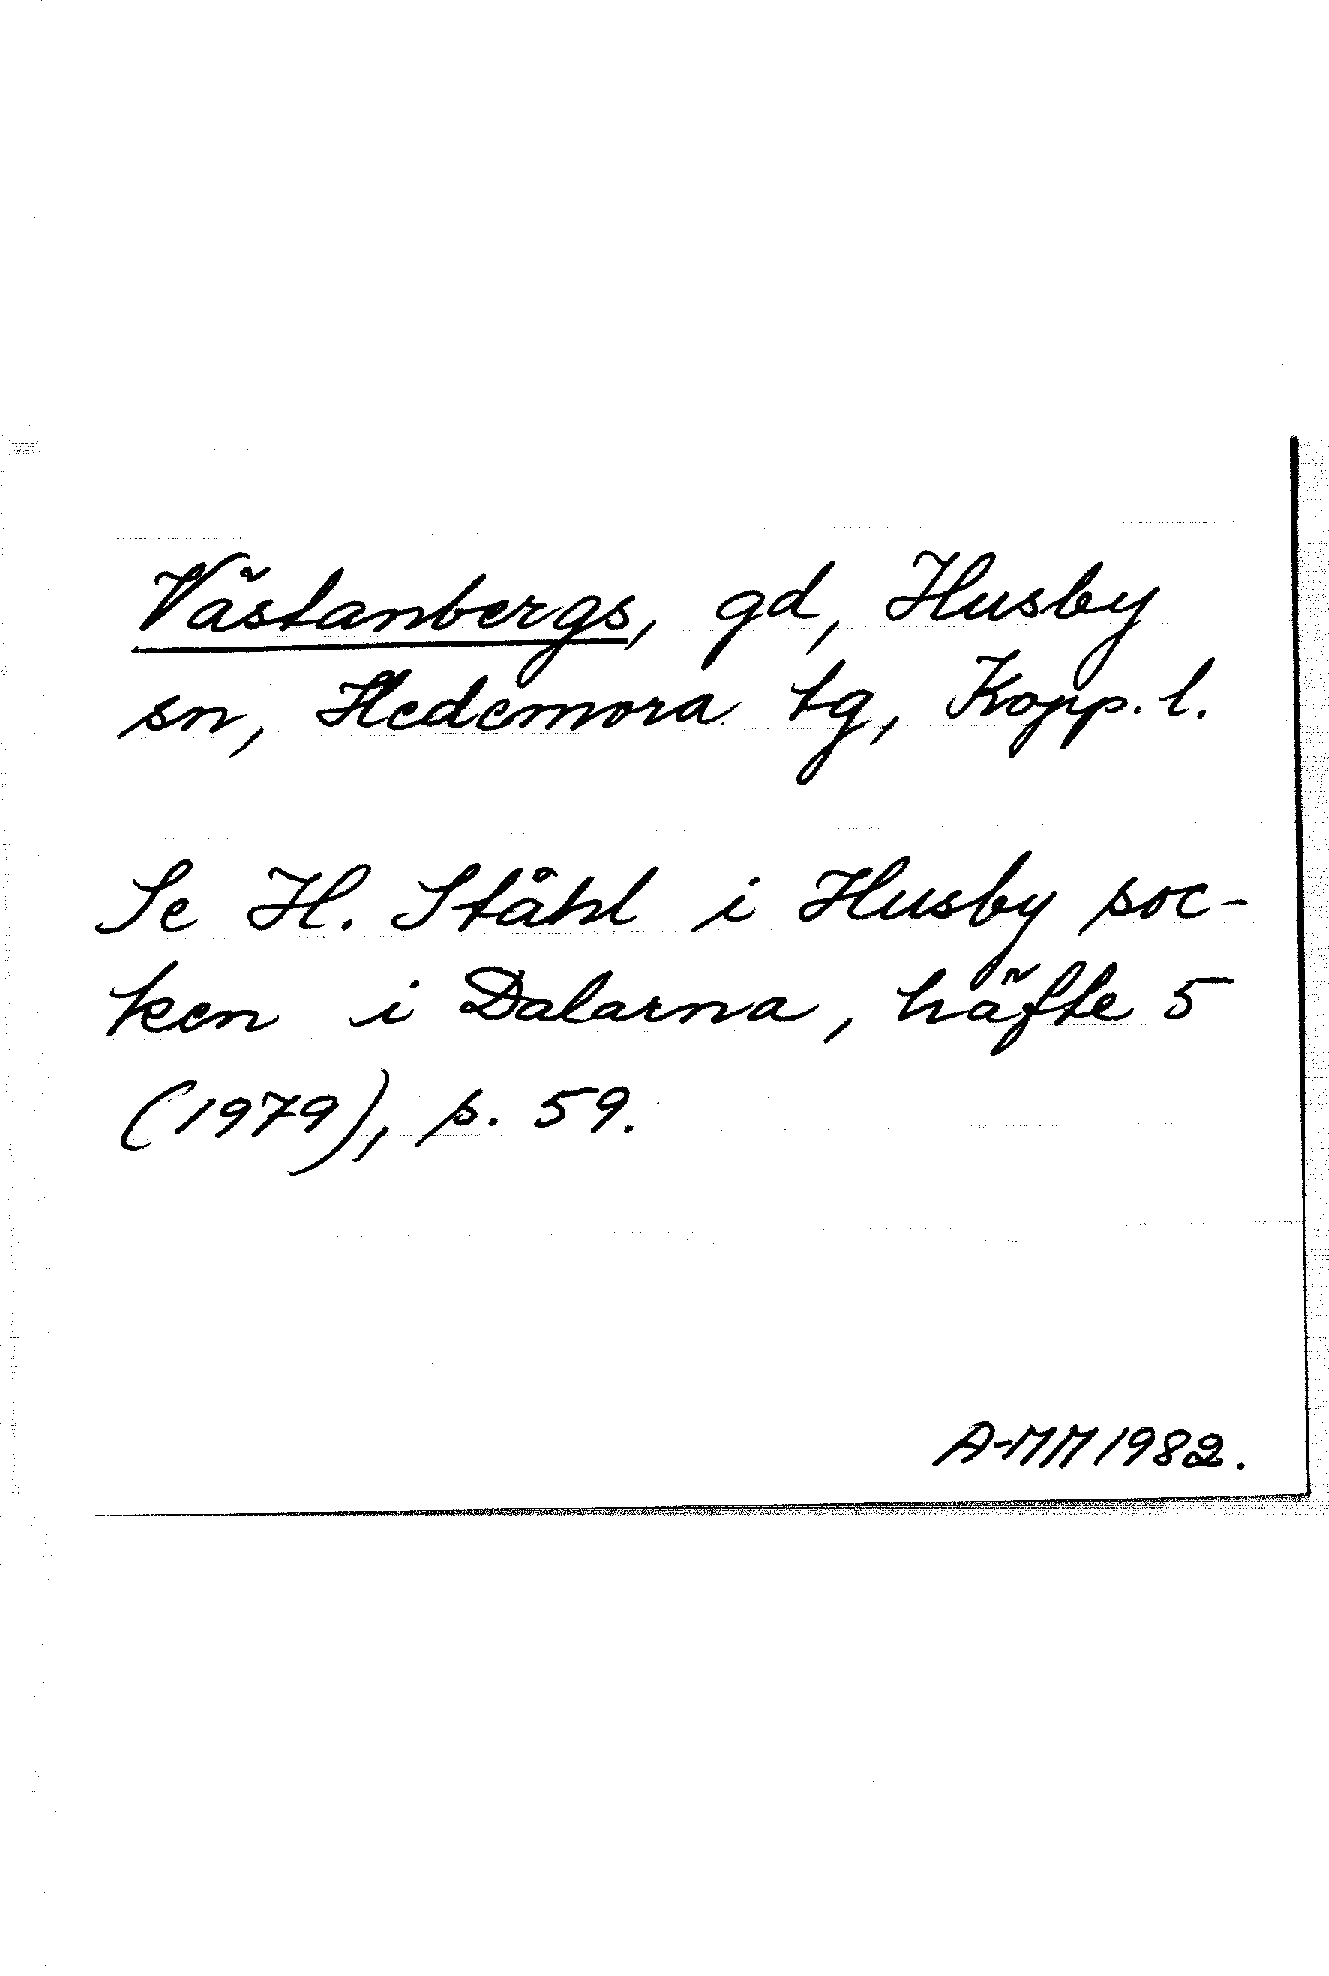 Västanbergs, gd, Husby
sn, Hedemora tg, Kopp. l.
Se H. Ståhl i Husby soc-
ken i Dalarna, häfte 5
(1979), s. 59.
A-MM 1982.